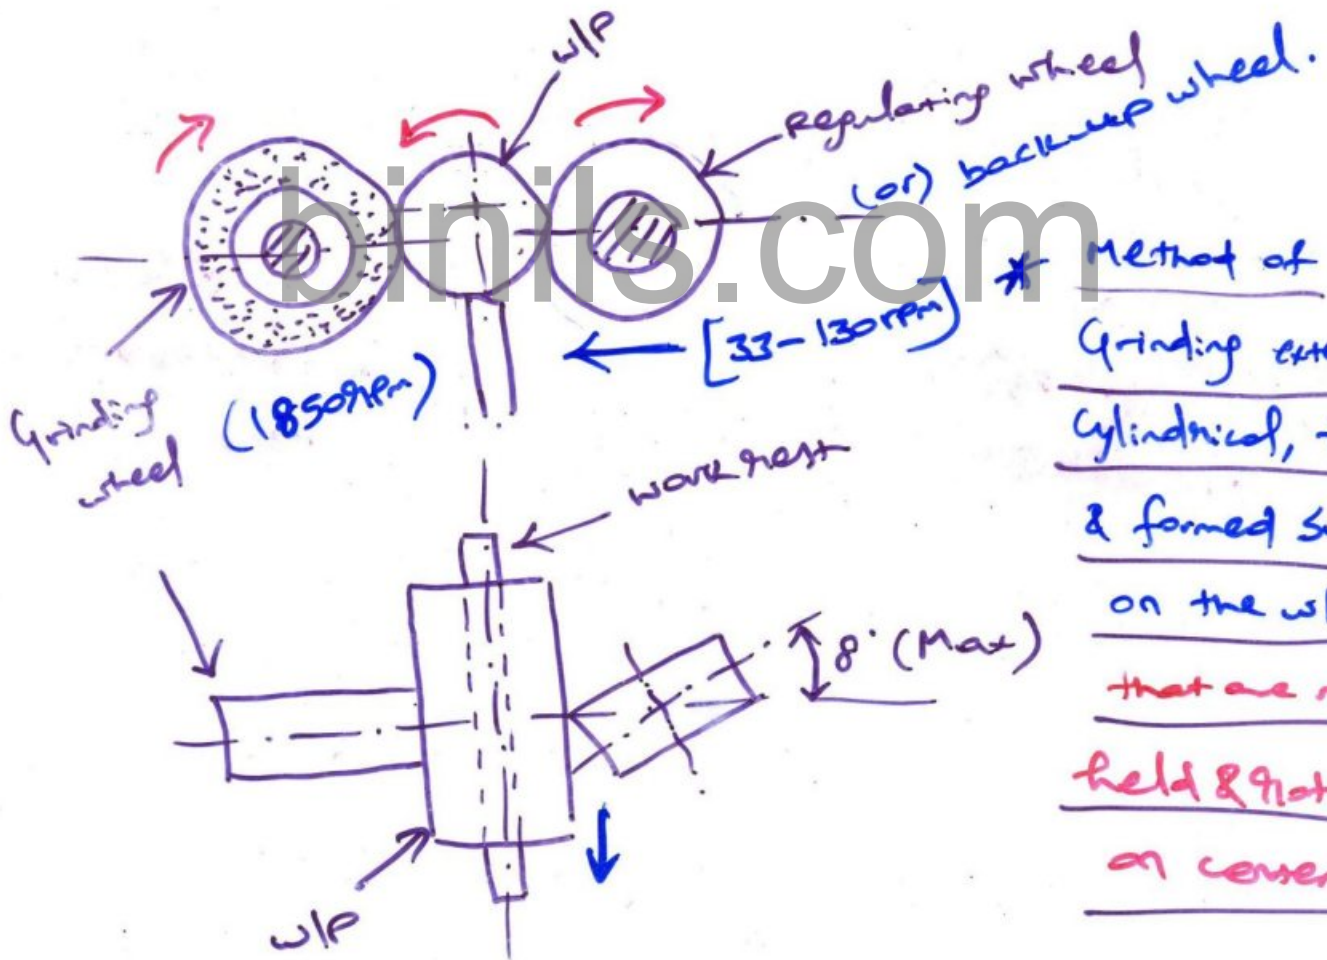 w/p
regulating wheel
(or) backup wheel.
binils.com
[33-130rpm]
Grinding
wheel
(1850rpm)
work rest
8° (Max)
w/p
* Method of
Grinding exte
Cylindrical,
& formed
on the w
that are
held & rot
on